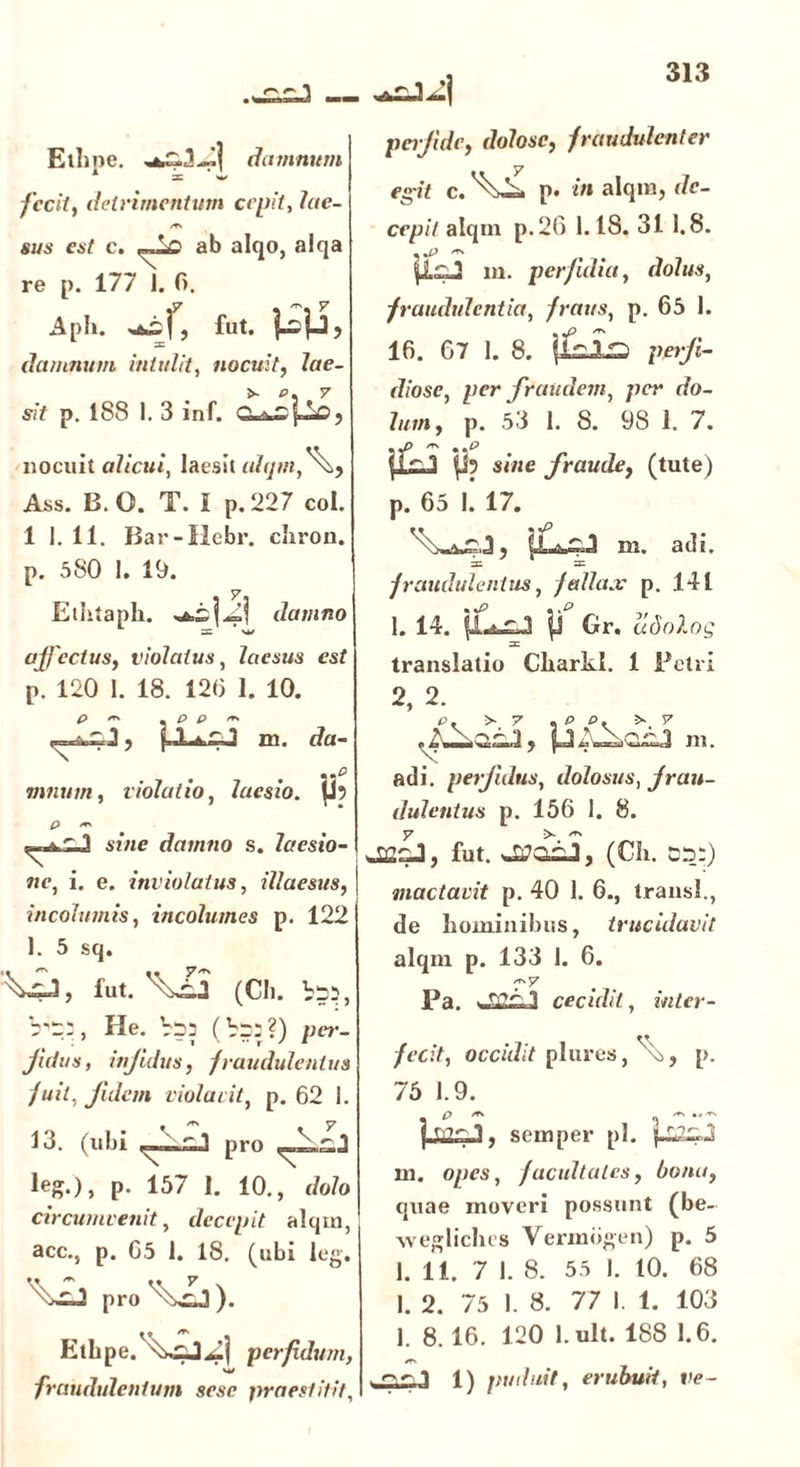 313
.ܢܟܦ — ܐܬܢܟܝ
Ethpe. ܐܬܢܟܝ damnum
fecit, detrimentum cepit, lae-
sus est c. ܡܢ ab alqo, alqa
re p. 177 l. 6.
Aph. ܐܟܝ, fut. ܢܐܟܐ,
damnum intulit, nocuit, lae-
sit p. 188 l. 3 inf. ܡܐܟܝܘ,
nocuit alicui, laesit alqm, ܠ,
Ass. B. O. T. I p. 227 col.
1 l. 11. Bar-Hebr. chron.
p. 580 l. 19.
Ethtaph. ܐܬܐܟܝ damno
affectus, violatus, laesus est
p. 120 l. 18. 126 l. 10.
ܢܟܝܢ, ܢܟܝܢܐ m. da-
mnum, violatio, laesio. ܕܠܐ
ܢܟܝܢ sine damno s. laesio-
ne, i. e. inviolatus, illaesus,
incolumis, incolumes p. 122
l. 5 sq.
ܢܟܠ, fut. ܢܟܠ (Ch. נכל,
נכיל, He. נכל (נכל?) per-
fidus, infidus, fraudulentus
fuit, fidem violavit, p. 62 l.
13. (ubi ܢܟܠܢ pro ܢܟܠܢ
leg.), p. 157 l. 10., dolo
circumvenit, decepit alqm,
acc., p. 65 l. 18. (ubi leg.
ܢܟܠ pro ܢܟܠ).
Ethpe. ܐܬܢܟܠ perfidum,
fraudulentum sese praestitit,
perfide, dolose, fraudulenter
egit c. ܥܠ p. in alqm, de-
cepit alqm p. 26 l. 18. 31 l. 8.
ܢܟܠܐ m. perfidia, dolus,
fraudulentia, fraus, p. 65 l.
16. 67 l. 8. ܒܢܟܠܐ perfi-
diose, per fraudem, per do-
lum, p. 53 l. 8. 98 l. 7.
ܕܠܐ ܢܟܠܐ sine fraude, (tute)
p. 65 l. 17.
ܢܟܝܠ, ܢܟܝܠܐ m. adi.
fraudulentus, fallax p. 141
l. 14. ܠܐ ܢܟܝܠܐ Gr. ἄδολος
translatio Charkl. 1 Petri
2, 2.
ܢܟܘܠܬܢ, ܢܟܘܠܬܢܐ m.
adi. perfidus, dolosus, frau-
dulentus p. 156 l. 8.
ܢܟܣ, fut. ܢܟܘܣ, (Ch. נכס)
mactavit p. 40 l. 6., transl.,
de hominibus, trucidavit
alqm p. 133 l. 6.
Pa. ܢܟܣ cecidit, inter-
fecit, occidit plures, ܠ, p.
75 l. 9.
ܢܟܣܐ, semper pl. ܢܟܣܐ
m. opes, facultates, bona,
quae moveri possunt (be-
wegliches Vermögen) p. 5
l. 11. 7 l. 8. 55 l. 10. 68
l. 2. 75 l. 8. 77 l. 1. 103
l. 8. 16. 120 l. ult. 188 l. 6.
ܢܟܦ 1) puduit, erubuit, ve-